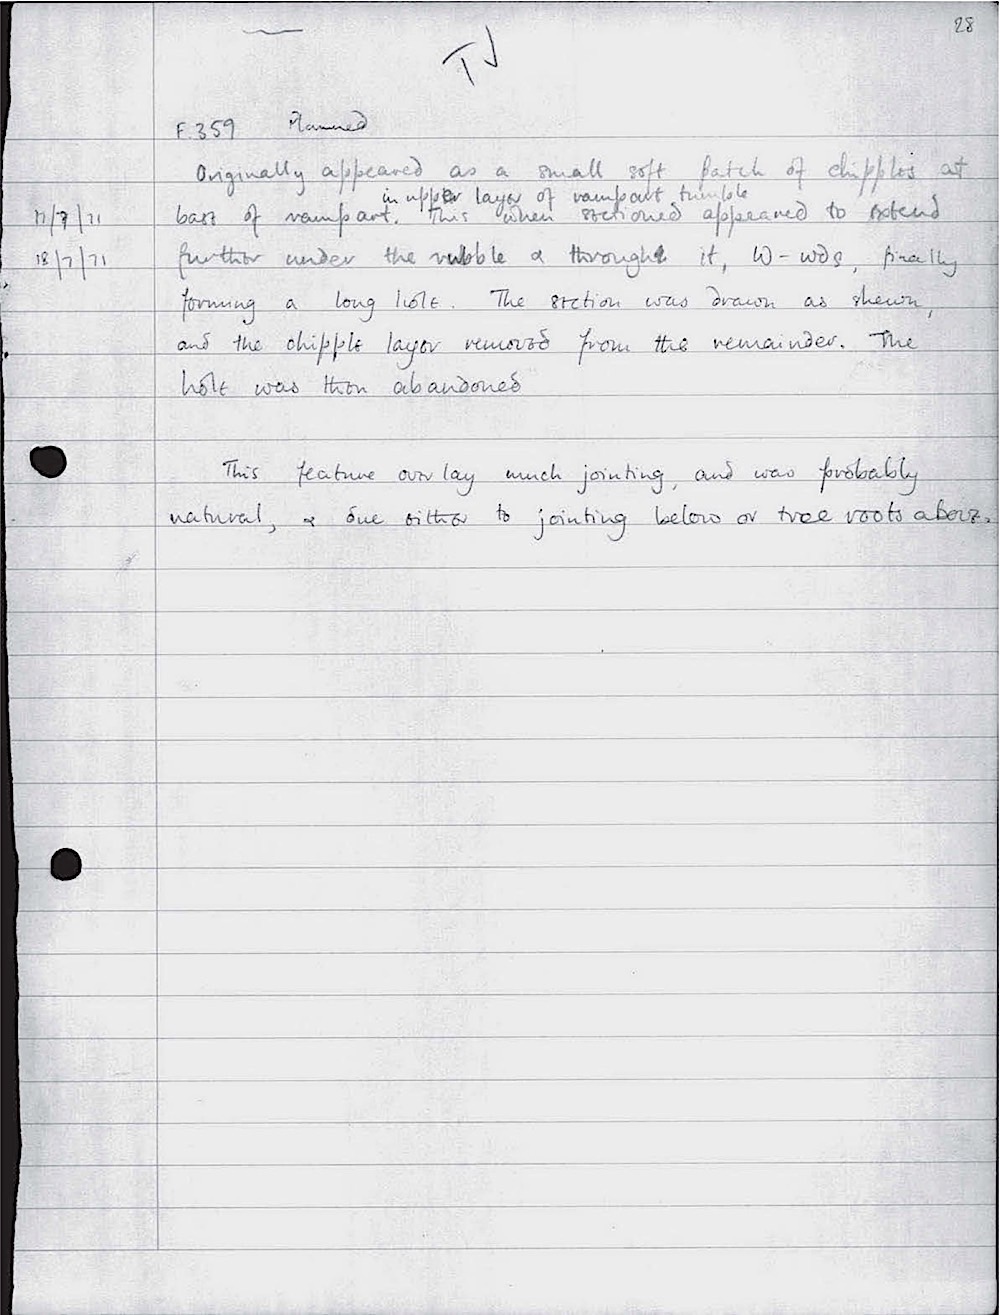 28
TJ
F.359 Planned
Originally appeared as a small soft patch of chipples at
in upper layer of rampart tumble
17/7/71 base of rampart. This when sectioned appeared to extend
18/7/71 further under the rubble & through it, W-wds, finally
forming a long hole. The section was drawn as shewn,
and the chipple layer removed from the remainder. The
hole was then abandoned
This feature overlay much jointing, and was probably
natural, & due either to jointing below or tree roots above.